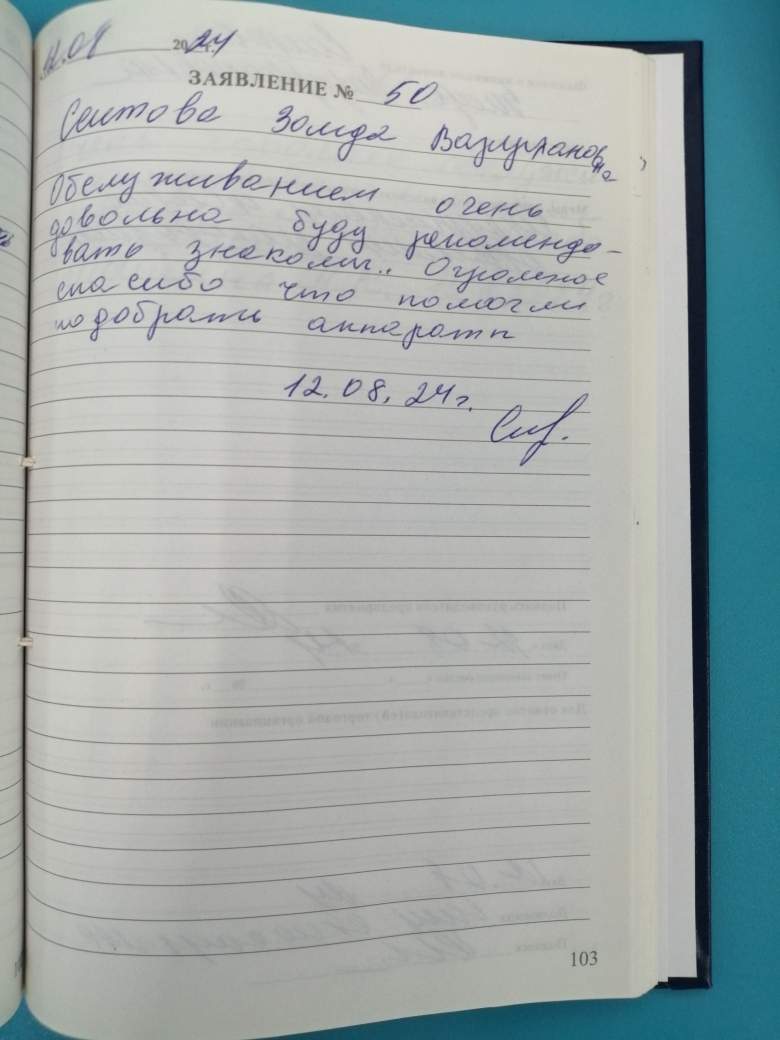 12.08 2024 г.
ЗАЯВЛЕНИЕ № 50
Сеитова Зоида
Обслуживанием очень
довольна буду рекомендо-
вать знакомы.. Огромное
спасибо что помогли
подобрать аппараты
12.08.24г.
103